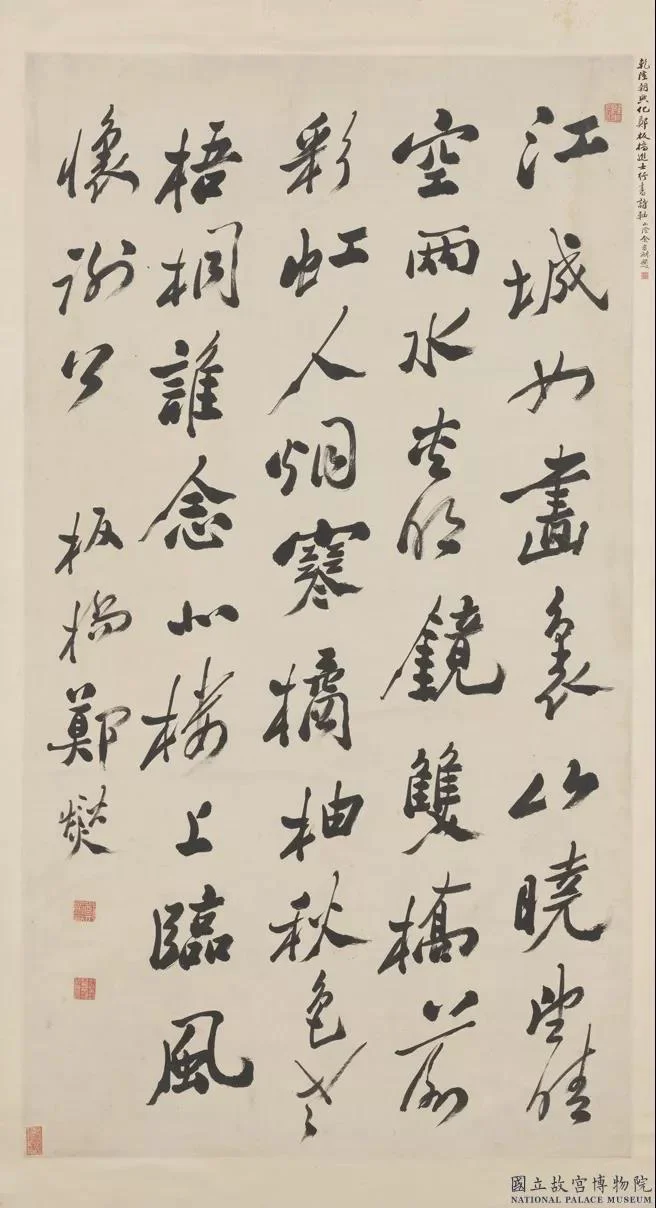 乾隆朝興化鄭板橋進士行書詩軸 山陰
江城如畫裏山曉望晴
空兩水夾明鏡雙橋落
彩虹人烟寒橘柚秋色老
梧桐誰念北楼上臨風
懷謝公 板橋鄭燮
國立故宮博物院
NATIONAL PALACE MUSEUM